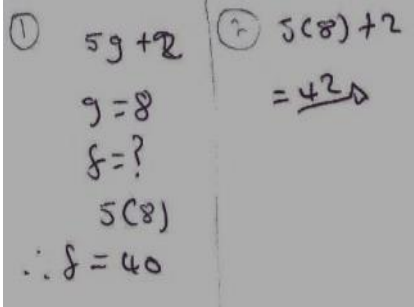 ① 5g + 2
g = 8
f = ?
5(8)
∴ f = 40
② 5(8) + 2
= 42